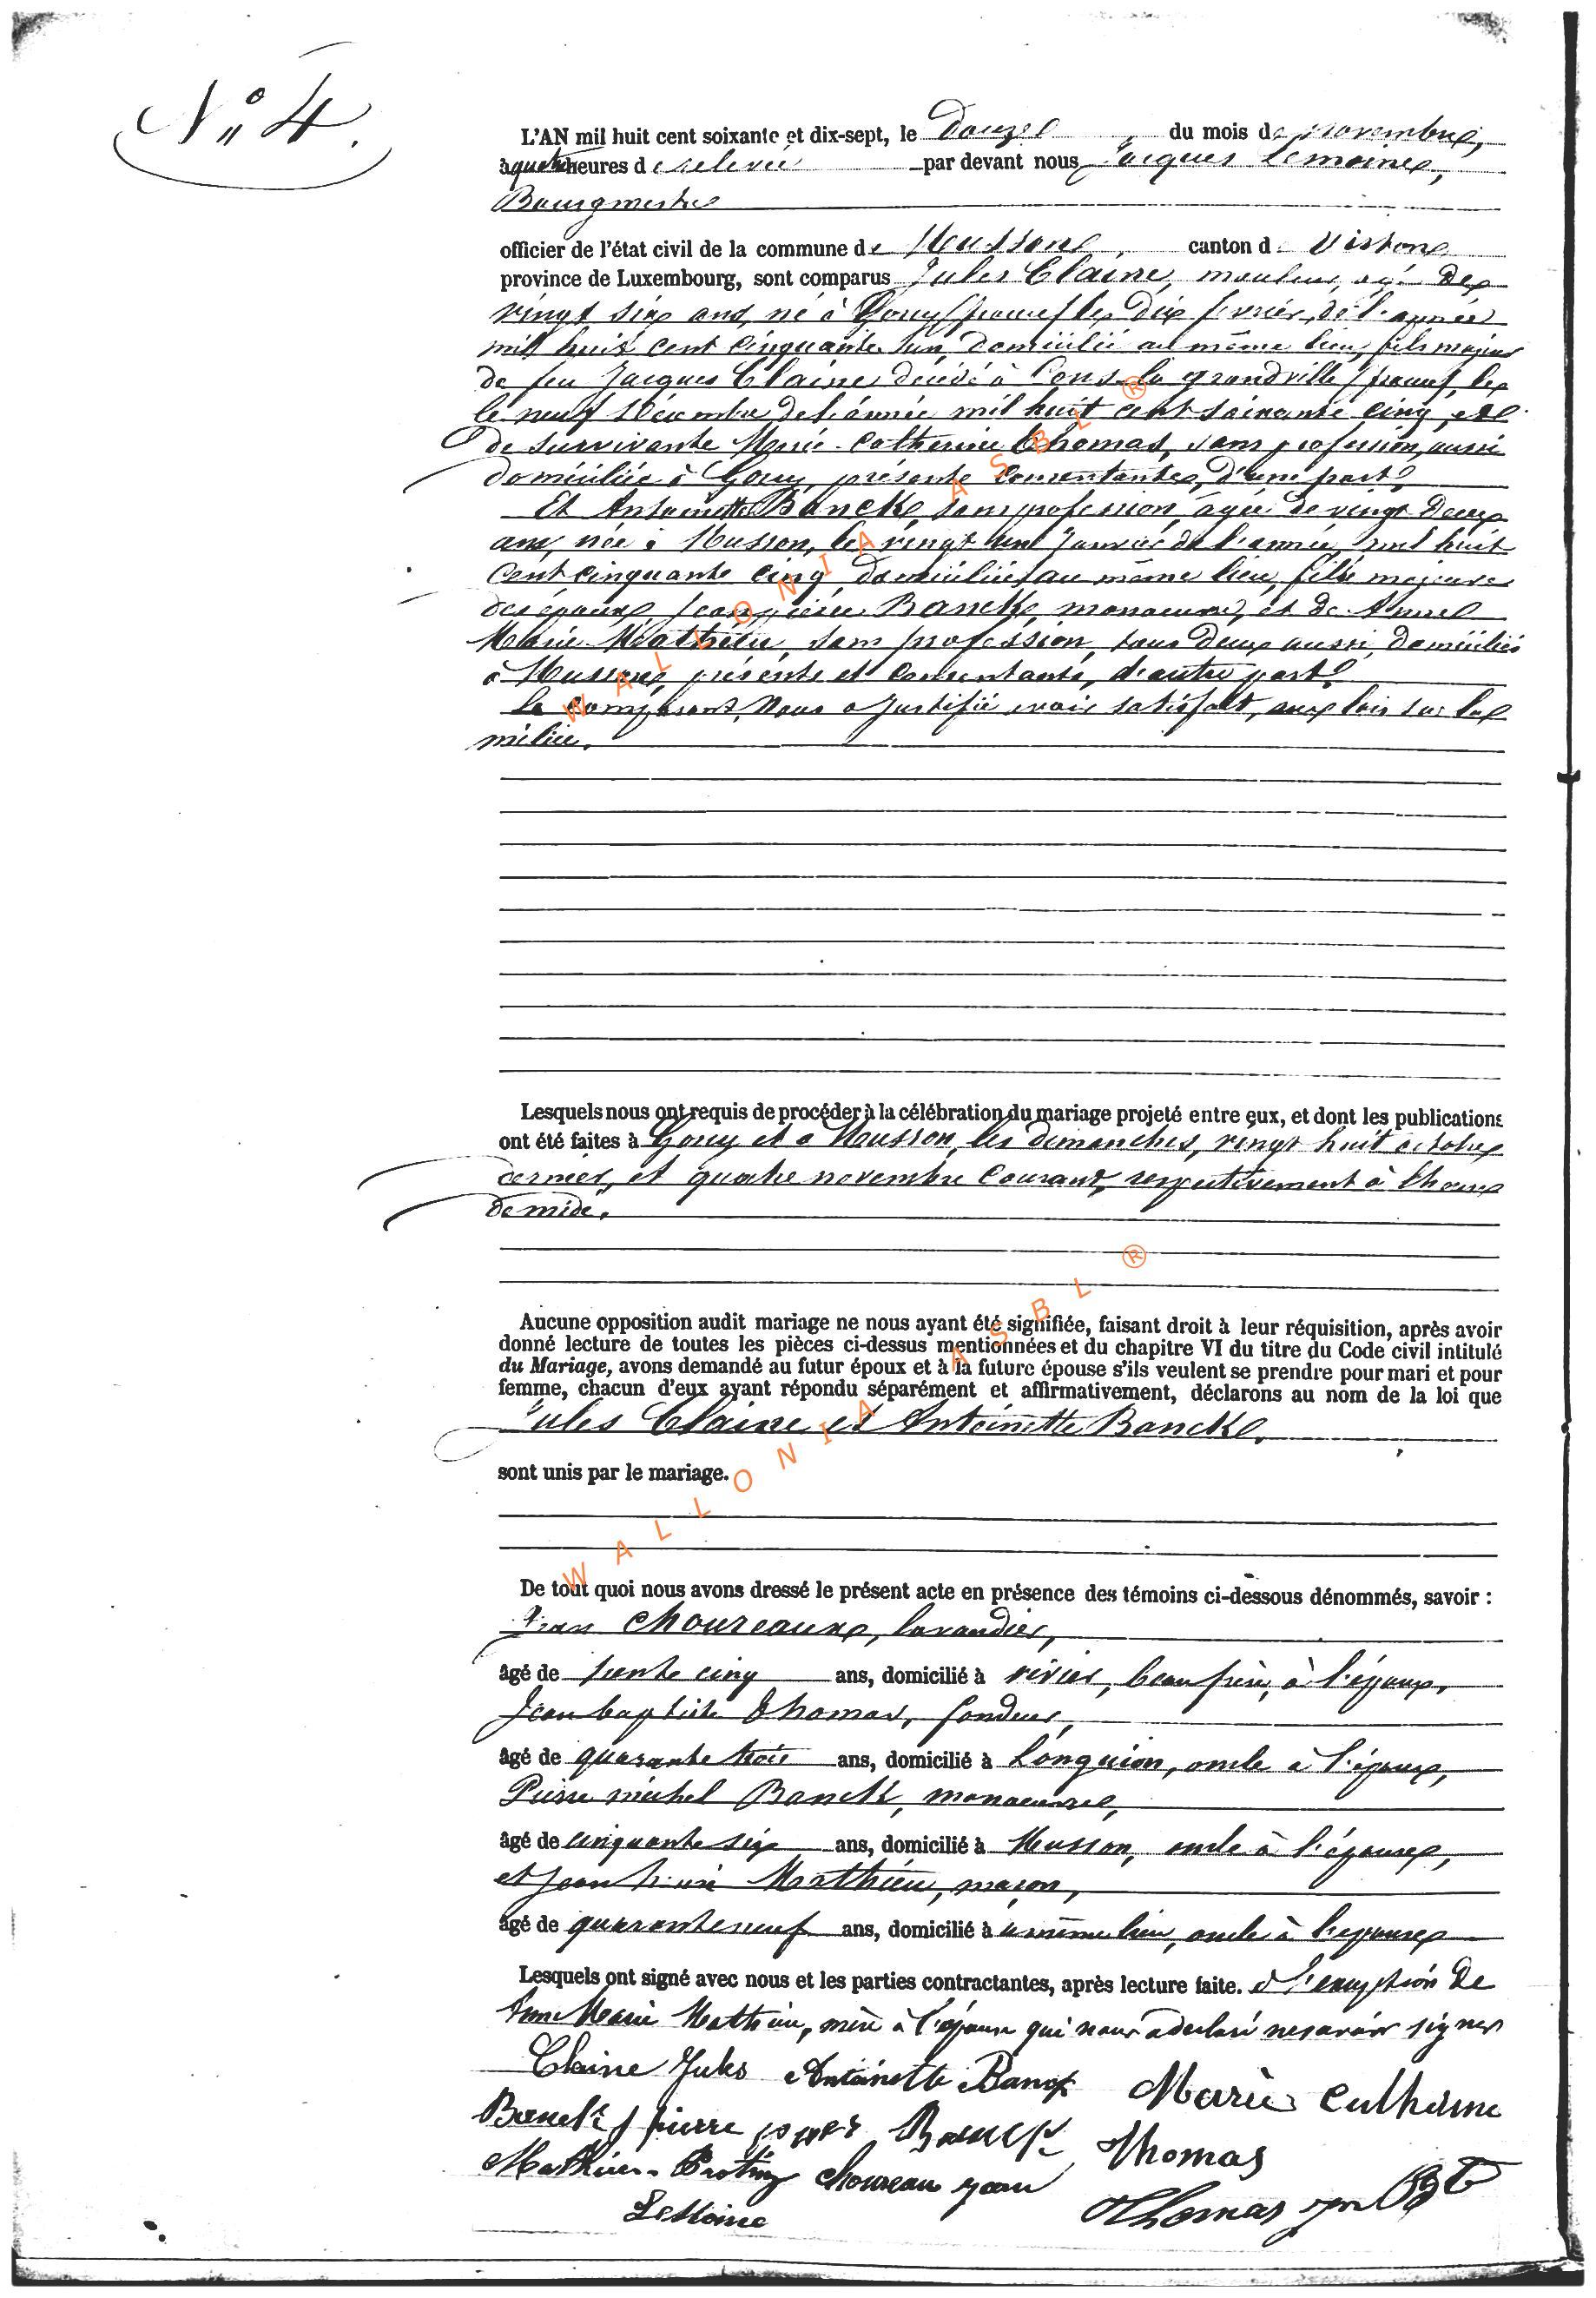 N° 4.
L'AN mil huit cent soixante et dix-sept, le Douze du mois de novembre,
à quatre heures de relevée par devant nous Jacques Lemoine,
Bourgmestre
officier de l'état civil de la commune de Musson canton de Virton
province de Luxembourg, sont comparus Jules Claine, mouleur, agé de
vingt six ans, né à Gorcy (france) le dix fevrier de l'année
mil huit cent cinquante un, domicilié au même lieu, fils majeur
de feu Jacques Claine décédé à Cons la grandville (france) le
le neuf Décembre de l'année mil huit cent soixante cinq, et
de survivante Marie-Catherine Thomas, sans profession, aussi
domiciliée à Gorcy, présente consentante, d'une part,
Et Antoinette Bancke, sans profession, âgée de vingt deux
ans, née à Musson, le vingt un Janvier de l'année mil huit
cent cinquante cinq domiciliée au même lieu, fille majeure
des époux Jean pierre Bancke, manoeuvre, et de Anne
Marie Mathieu, sans profession, tous deux aussi domiciliés
à Musson, présents et consentants, d'autre part.
Le comparant, Nous a justifié avoir satisfait, aux lois sur la
milice.
Lesquels nous ont requis de procéder à la célébration du mariage projeté entre eux, et dont les publications
ont été faites à Gorcy et à Musson, les dimanches, vingt huit octobre
dernier, et quatre novembre courant, respectivement à l'heure
de midi.
Aucune opposition audit mariage ne nous ayant été signifiée, faisant droit à leur réquisition, après avoir
donné lecture de toutes les pièces ci-dessus mentionnées et du chapitre VI du titre du Code civil intitulé
du Mariage, avons demandé au futur époux et à la future épouse s'ils veulent se prendre pour mari et pour
femme, chacun d'eux ayant répondu séparément et affirmativement, déclarons au nom de la loi que
Jules Claine et Antoinette Bancke.
sont unis par le mariage.
De tout quoi nous avons dressé le présent acte en présence des témoins ci-dessous dénommés, savoir :
Jean Choureaux, lavandier,
âgé de trente cinq ans, domicilié à vivier, beau frère, à l'époux,
Jean baptiste Thomas, fondeur,
âgé de quarante trois ans, domicilié à Longuion, oncle à l'époux,
Pierre michel Banck, manoeuvre,
âgé de cinquante six ans, domicilié à Musson, oncle à l'épouse,
et Jean Mathieu, maçon,
âgé de quarante neuf ans, domicilié à même lieu, oncle à l'épouse
Lesquels ont signé avec nous et les parties contractantes, après lecture faite. à l'exception de
Anne Marie Mathieu, mère à l'épouse qui nous a declaré ne savoir signer
Claine Jules Antoinette Banck Marie Catherine
Banck pierre Banck Thomas
Mathieu Choureau jean Thomas
LeMoine
WALLONIA ASBL ®
WALLONIA ASBL ®